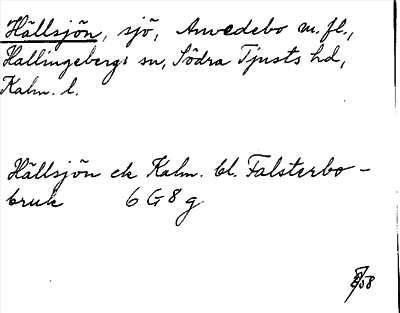 Hällsjön, sjö, Anvedebo m.fl.,
Hallingebergs sn, Södra Tjusts hd,
Kalm. l.
Hällsjön ek Kalm. bl. Falsterbo-
bruk 6 G 8 g